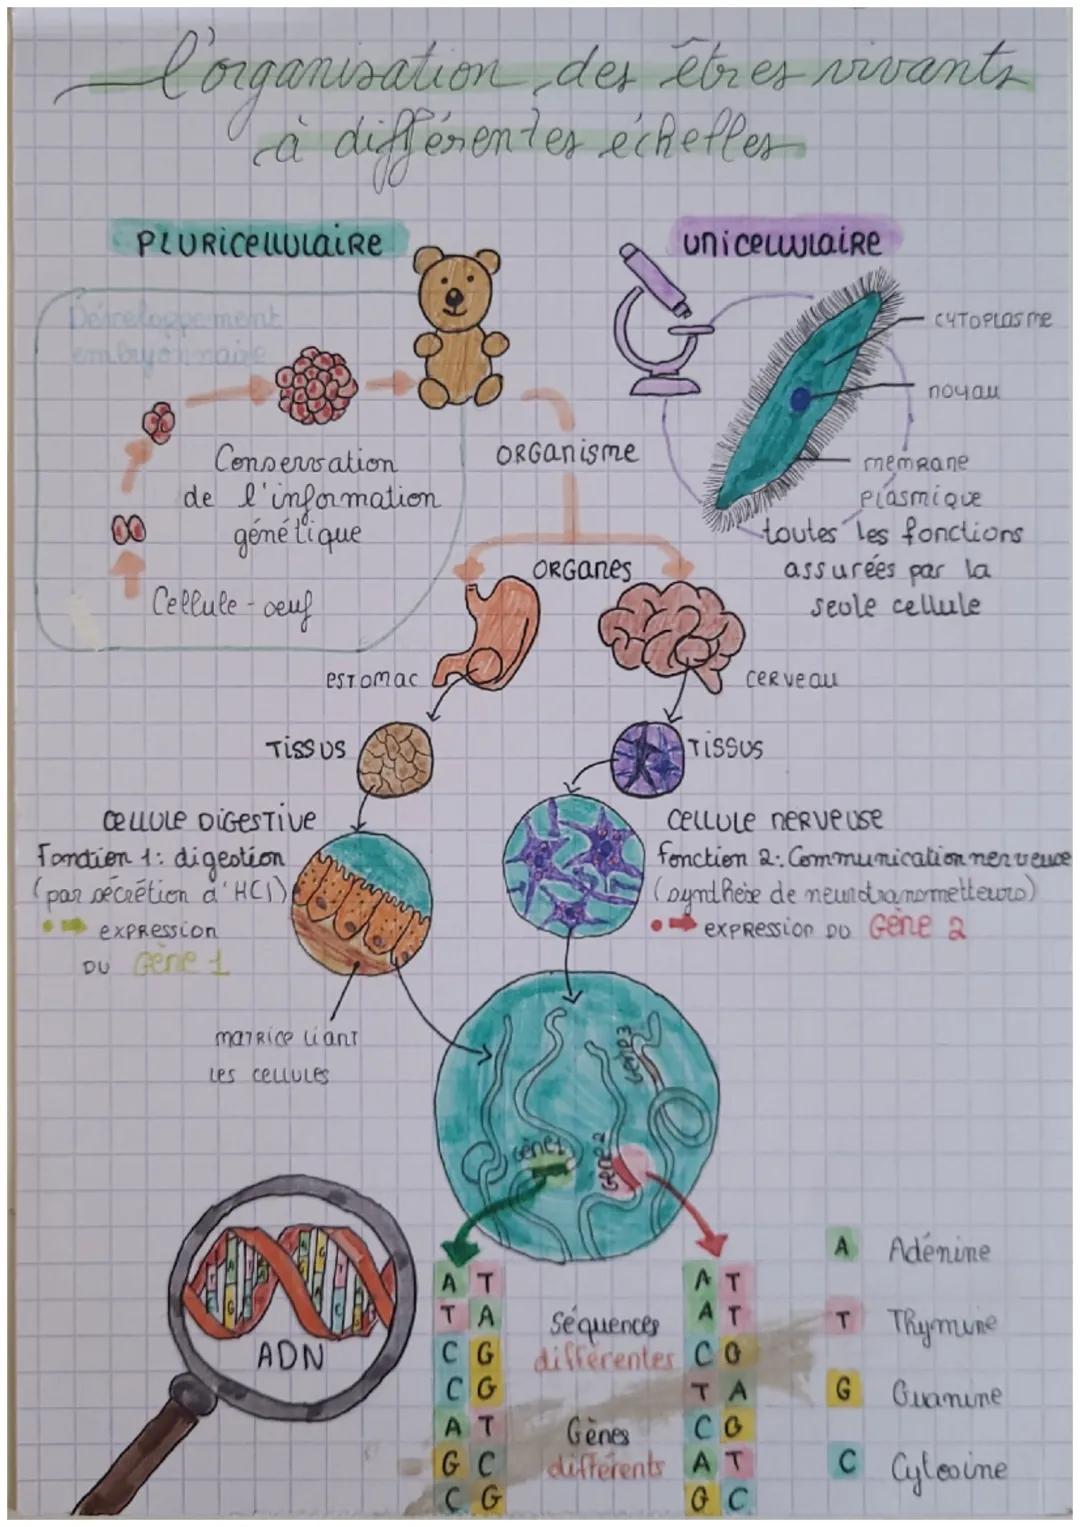 l'organisation des êtres vivants
à différentes échelles
PLURICELLULAIRE
UNICELLULAIRE
Développement
embryonnaire
CYTOPLASME
NOYAU
MEMRANE
PLASMIQUE
toutes les fonctions
assurées par la
seule cellule
Conservation
de l'information
génétique
Cellule-oeuf
ORGANISME
ORGANES
ESTOMAC
CERVEAU
TISSUS
TISSUS
CELLULE DIGESTIVE
Fonction 1: digestion
(par sécrétion d'HCl)
EXPRESSION
DU Gène 1
CELLULE NERVEUSE
fonction 2: Communication nerveuse
(synthèse de neurotransmetteurs)
EXPRESSION DU Gène 2
MATRICE LIANT
LES CELLULES
Gène 1
Gène 2
Gène 3
ADN
A T
T A
C G
C G
A T
G C
C G
Séquences
différentes
Gènes
différents
A T
A T
C G
T A
C G
A T
G C
A Adénine
T Thymine
G Guanine
C Cytosine